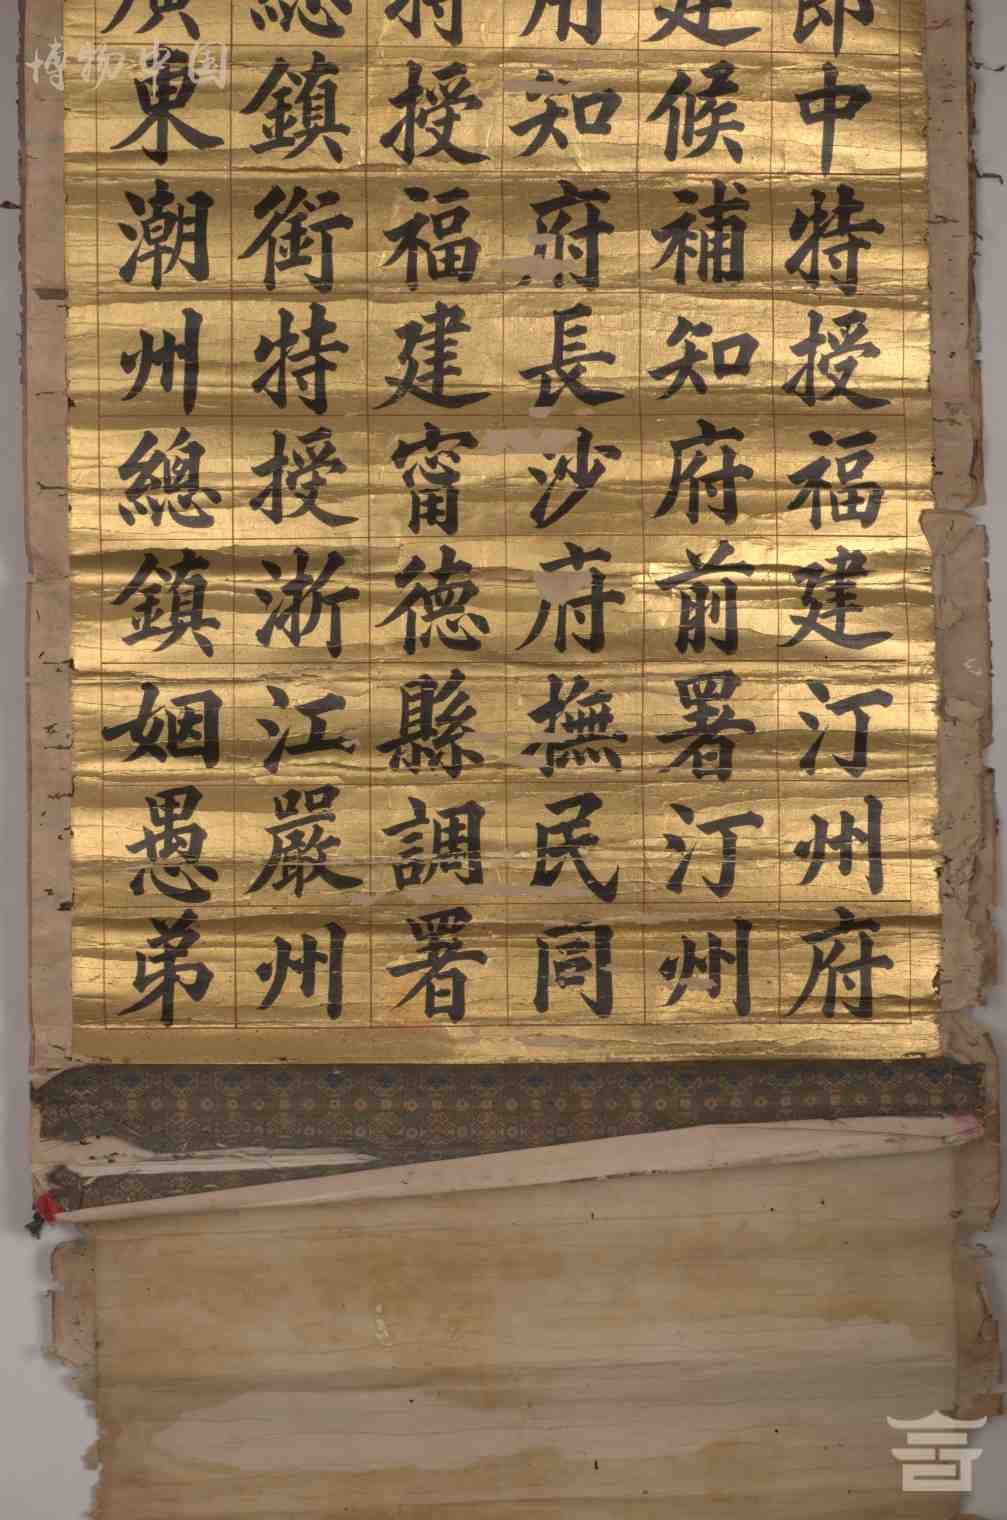 郎中特授福建汀州府
建候補知府前署汀州
用知府長沙府撫民同
特授福建甯德縣調署
總鎮銜特授浙江嚴州
廣東潮州總鎮姻愚弟
博物中国